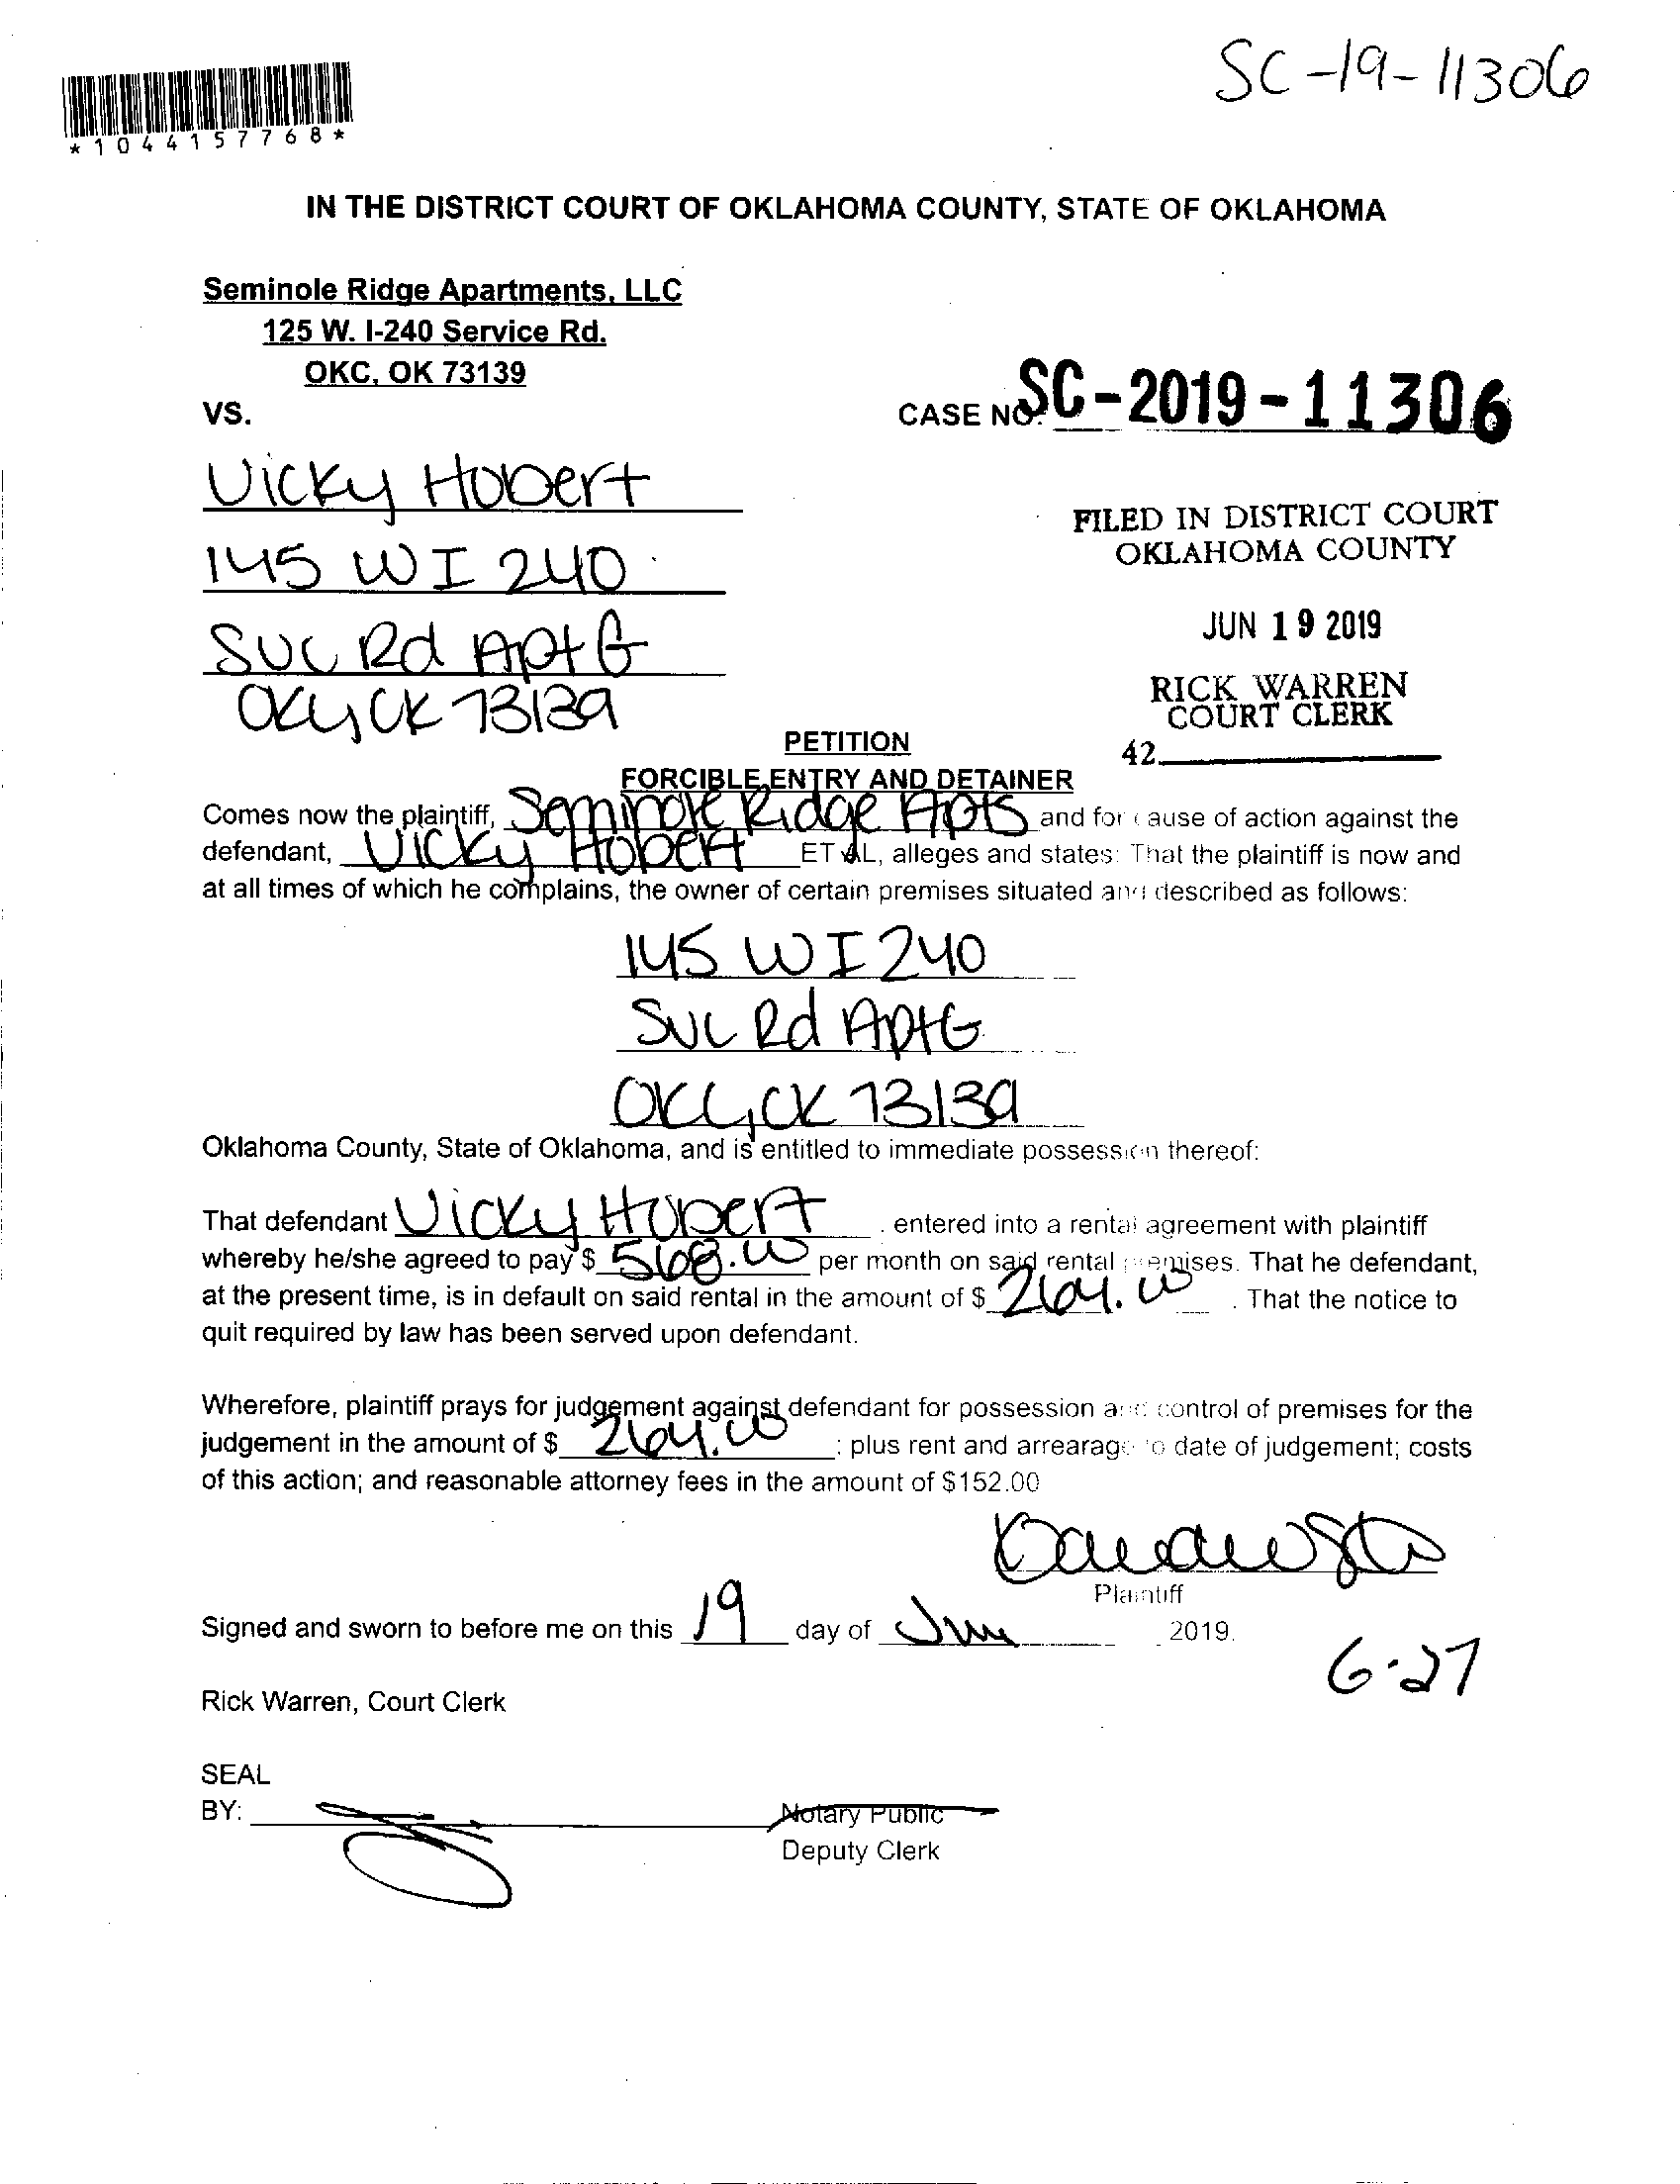 SC-19-11306
*1044157768*
IN THE DISTRICT COURT OF OKLAHOMA COUNTY, STATE OF OKLAHOMA
Seminole Ridge Apartments, LLC
125 W. I-240 Service Rd.
OKC, OK 73139
VS.
CASE NO. SC-2019-11306
Vicky Hobert
145 W I 240
SVC Rd Apt G
OKC, OK 73139
FILED IN DISTRICT COURT
OKLAHOMA COUNTY
JUN 19 2019
RICK WARREN
COURT CLERK
42
PETITION
FORCIBLE ENTRY AND DETAINER
Comes now the plaintiff, Seminole Ridge Apts and for cause of action against the
defendant, Vicky Hobert ET AL, alleges and states: That the plaintiff is now and
at all times of which he complains, the owner of certain premises situated and described as follows:
145 W I 240
SVC Rd Apt G
OKC, OK 73139
Oklahoma County, State of Oklahoma, and is entitled to immediate possession thereof:
That defendant Vicky Hobert entered into a rental agreement with plaintiff
whereby he/she agreed to pay $ 568.00 per month on said rental premises. That he defendant,
at the present time, is in default on said rental in the amount of $ 264.00. That the notice to
quit required by law has been served upon defendant.
Wherefore, plaintiff prays for judgement against defendant for possession and control of premises for the
judgement in the amount of $ 264.00; plus rent and arrearage to date of judgement; costs
of this action; and reasonable attorney fees in the amount of $152.00
Plaintiff
Signed and sworn to before me on this 19 day of Jun 2019.
6-27
Rick Warren, Court Clerk
SEAL
BY: Notary Public
Deputy Clerk